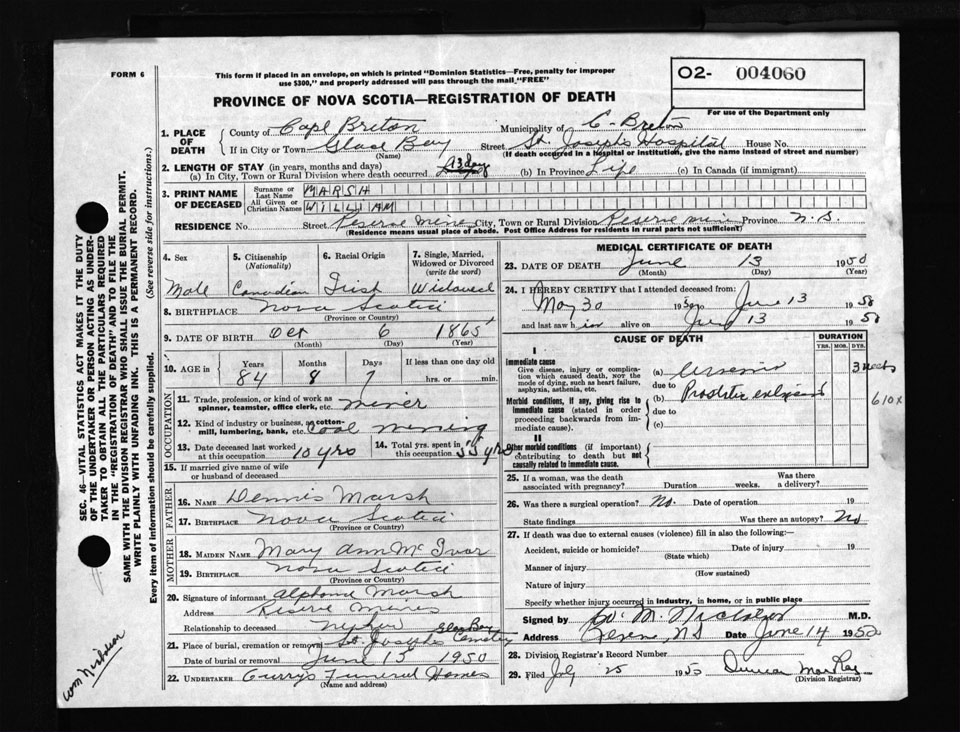 FORM 6
This form if placed in an envelope, on which is printed "Dominion Statistics—Free, penalty for improper
use $300," and properly addressed will pass through the mail "FREE"
O2- 004060
For use of the Department only
PROVINCE OF NOVA SCOTIA—REGISTRATION OF DEATH
1. PLACE OF DEATH
County of Cape Breton Municipality of C. Breton
If in City or Town Glace Bay Street St. Josephs Hospital House No.
(Name) (If death occurred in a hospital or institution, give the name instead of street and number)
2. LENGTH OF STAY (in years, months and days)
(a) In City, Town or Rural Division where death occurred (b) In Province Life (c) In Canada (if immigrant)
3. PRINT NAME OF DECEASED
Surname or Last Name MARSH
All Given or Christian Names WILLIAM
RESIDENCE No. Street Reserve Mines City, Town or Rural Division Reserve Mines Province N.S.
(Residence means usual place of abode. Post Office Address for residents in rural parts not sufficient)
4. Sex 5. Citizenship (Nationality) 6. Racial Origin 7. Single, Married, Widowed or Divorced (write the word)
Male Canadian Irish Widowed
8. BIRTHPLACE Nova Scotia
(Province or Country)
9. DATE OF BIRTH Oct 6 1865
(Month) (Day) (Year)
10. AGE in Years Months Days If less than one day old
84 8 7 hrs. or min.
OCCUPATION
11. Trade, profession, or kind of work as spinner, teamster, office clerk, etc. miner
12. Kind of industry or business, as cotton-mill, lumbering, bank, etc. Coal mining
13. Date deceased last worked at this occupation 10 yrs
14. Total yrs. spent in this occupation 55 yrs
15. If married give name of wife or husband of deceased
FATHER
16. NAME Dennis Marsh
17. BIRTHPLACE Nova Scotia
(Province or Country)
MOTHER
18. MAIDEN NAME Mary Ann McIvor
19. BIRTHPLACE Nova Scotia
(Province or Country)
20. Signature of informant Alphonse Marsh
Address Reserve Mines
Relationship to deceased nephew
21. Place of burial, cremation or removal St. Josephs Cemetery Glace Bay
Date of burial or removal June 15 1950
22. UNDERTAKER Curry's Funeral Homes
(Name and address)
MEDICAL CERTIFICATE OF DEATH
23. DATE OF DEATH June 13 1950
(Month) (Day) (Year)
24. I HEREBY CERTIFY that I attended deceased from:
May 30 1950 to June 13 1950
and last saw him alive on June 13 1950
CAUSE OF DEATH
DURATION
YRS. MOS. DYS.
I
Immediate cause
Give disease, injury or complication which caused death, NOT the mode of dying, such as heart failure, asphyxia, asthenia, etc.
(a) Uraemia 3 weeks
due to
Morbid conditions, if any, giving rise to immediate cause (stated in order proceeding backwards from immediate cause).
(b) Prostatic 610x
due to
(c)
II
Other morbid conditions (if important) contributing to death but not causally related to immediate cause.
25. If a woman, was the death associated with pregnancy? Duration weeks. Was there a delivery?
26. Was there a surgical operation? No. Date of operation 19
State findings Was there an autopsy? No
27. If death was due to external causes (violence) fill in also the following:—
Accident, suicide or homicide? Date of injury 19
(State which)
Manner of injury
(How sustained)
Nature of injury
Specify whether injury occurred in industry, in home, or in public place
Signed by M.D.
Address N S Date June 14 1950
28. Division Registrar's Record Number
29. Filed July 25 1950 Duncan MacRae
(Division Registrar)
SEC. 46—VITAL STATISTICS ACT MAKES IT THE DUTY
OF THE UNDERTAKER OR PERSON ACTING AS UNDER-
TAKER TO OBTAIN ALL THE PARTICULARS REQUIRED
IN THE "REGISTRATION OF DEATH" AND TO FILE THE
SAME WITH THE DIVISION REGISTRAR WHO SHALL ISSUE THE BURIAL PERMIT.
WRITE PLAINLY WITH UNFADING INK. THIS IS A PERMANENT RECORD.
Every item of information should be carefully supplied. (See reverse side for instructions.)